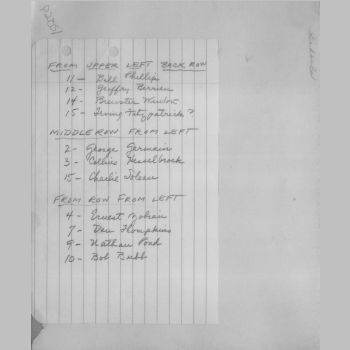 FROM UPPER LEFT BACK ROW
11 - Bill Phillips
12 - Geoffry Berrien
14 - Brewster
15 - Irving Fitzpatricks?
MIDDLE ROW FROM LEFT
2 - George Germain
3 - Collins Hesselbrock
15 - Charlie
FROM ROW FROM LEFT
4 - Ernest
7 - Dan Thompkins
9 - Nathan Pond
10 - Bob Bubb